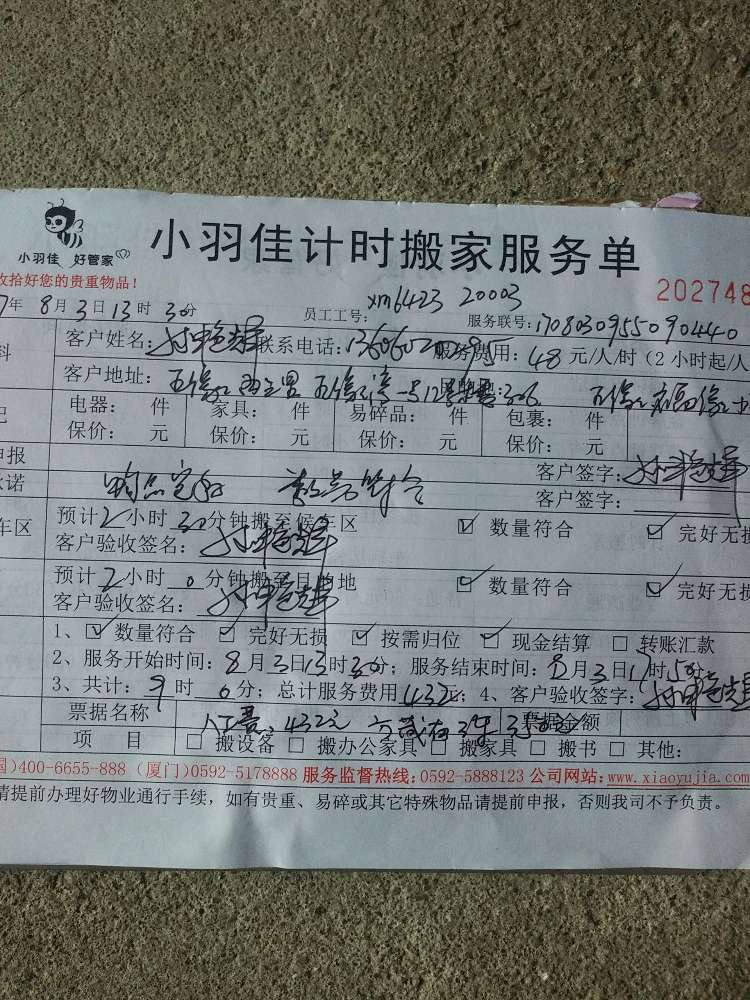 小羽佳 好管家
小羽佳计时搬家服务单
收拾好您的贵重物品！
202748
7年 8月3日13时30分 员工工号：xm6423 20003 服务联号：17080309550904440
客户姓名： 联系电话： 服务费用：48元/人/时（2小时起/人
客户地址：
电器： 件 家具： 件 易碎品： 件 包裹： 件
保价： 元 保价： 元 保价： 元 保价： 元
申报 客户签字：
承诺 物品完好 数量符合 客户签字：
车区 预计2小时30分钟搬至候车区 ☑ 数量符合 ☑ 完好无损
客户验收签名：
预计2小时0分钟搬至目的地 ☑ 数量符合 ☑ 完好无损
客户验收签名：
1、☑ 数量符合 ☑ 完好无损 ☑ 按需归位 ☑ 现金结算 □ 转账汇款
2、服务开始时间：8月3日13时30分；服务结束时间：8月3日17时50分
3、共计：9时0分；总计服务费用432元；4、客户验收签字：
票据名称 432元 票据金额
项 目 □ 搬设备 □ 搬办公家具 □ 搬家具 □ 搬书 □ 其他：
国）400-6655-888（厦门）0592-5178888 服务监督热线：0592-5888123 公司网站：www.xiaoyujia.com
请提前办理好物业通行手续，如有贵重、易碎或其它特殊物品请提前申报，否则我司不予负责。